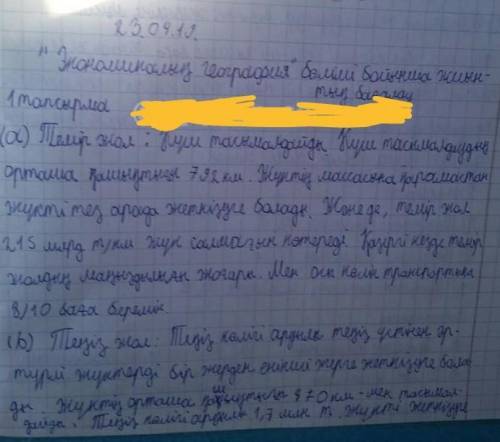 23.09.19.
"Экономикалық география" бөлімі бойынша жиын-
тық бағалау
1 тапсырма
(a) Темір жол: Күш тасымалдайды. Күш тасмалдаудың
орташа қашықтығы 792 км. Жүктің массасына қарамастан
жүкті тез арада жеткізуге болады. Және де, темір жол
215 млрд т/км жүк салмағын көтереді. Қазіргі кезде темір
жолдың маңыздылығы жоғары. Мен осы көлік транспортына
8/10 баға беремін.
(b) Теңіз жол: Теңіз көлігі арқылы теңіз үстінен әр-
түрлі жүктерді бір жерден екінші жерге жеткізуге бола-
ды. Жүктің орташа қашықтығы 870 км-мен тасмал-
дайды. Теңіз көлігі арқылы 1,7 млн т. жүкті жеткізуге